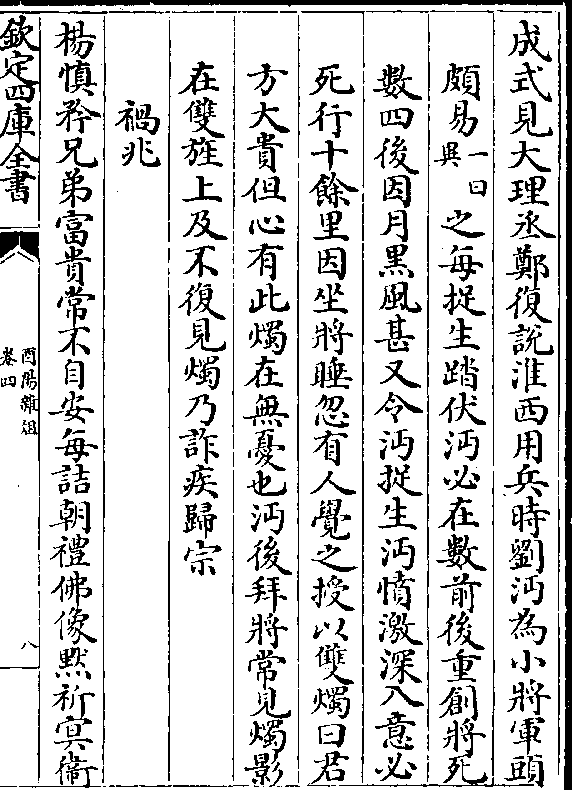 成式見大理丞鄭復説淮西用兵時劉沔為小將軍頭
頗易一曰異之每捉生踏伏沔必在數前後重創將死
數四後因月黒風甚又令沔捉生沔憤激深入意必
死行十餘里因坐將睡忽有人覺之授以雙燭曰君
方大貴但心有此燭在無憂也沔後拜將常見燭影
在雙旌上及不復見燭乃詐疾歸宗
禍兆
楊慎矜兄弟富貴常不自安每詰朝禮佛像黙祈冥衛
欽定四庫全書
酉陽雜俎
卷四
八